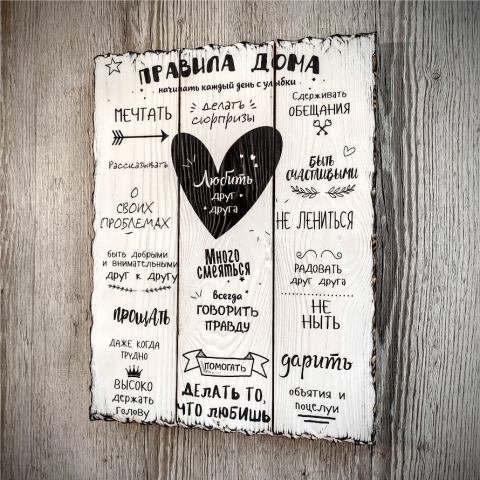 ПРАВИЛА ДОМА
начинать каждый день с улыбки
МЕЧТАТЬ
Рассказывать
О
СВОИХ
ПРОБЛЕМАХ
быть добрыми
и внимательными
друг к другу
ПРОЩАТЬ
ДАЖЕ КОГДА
ТРУДНО
ВЫСОКО
держать
голову
делать
сюрпризы
Любить
друг
друга
Много
смеяться
всегда
ГОВОРИТЬ
ПРАВДУ
ПОМОГАТЬ
ДЕЛАТЬ ТО,
ЧТО ЛЮБИШЬ
Сдерживать
ОБЕЩАНИЯ
БЫТЬ
СЧАСТЛИВЫМИ
НЕ ЛЕНИТЬСЯ
РАДОВАТЬ
друг друга
НЕ
НЫТЬ
дарить
объятия и
поцелуи